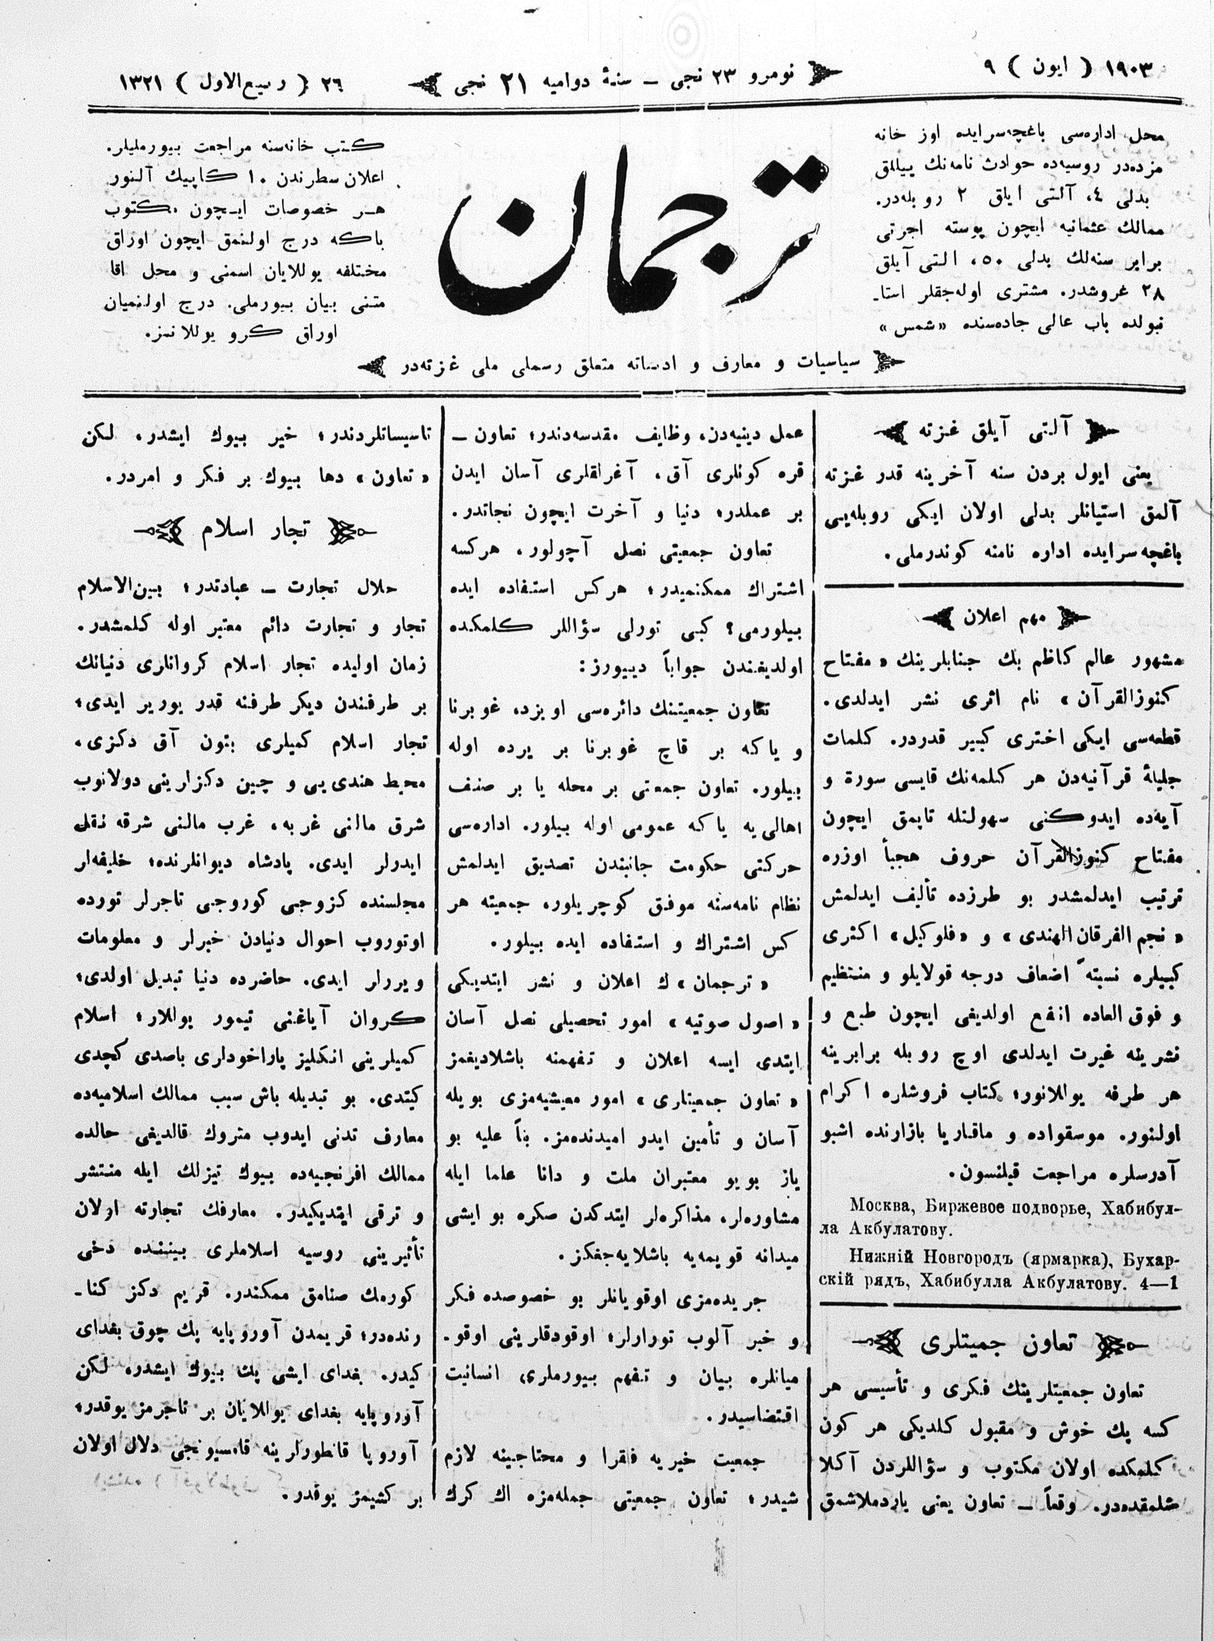 ١٩٠٣ ( ايون ) ٩
نومرو ٢٣ نجى ــ سنهٔ دواميه ٢١ نجى
٢٦ ( ربيع‌الاول ) ١٣٢١
محل اداره‌سى باغچه‌سرايده اوز خانه
مزده‌در روسيه‌ده حوادث نامه‌نك ييللق
بدلى ٤، آلتى ايلق ٢ روبله‌در.
ممالك عثمانيه ايچون پوسته اجرتى
برابر سنه‌لك بدلى ٥٠، التى آيلق
٢٨ غروشدر. مشترى اوله‌جقلر استا‍ـ
نبولده باب عالى جاده‌سنده «شمس»
ترجمان
كتب خانه‌سنه مراجعت بيورمليلر.
اعلان سطرندن ١٠ كاپيك آلنور
هر خصوصات ايچون مكتوب
باكه درج اولنمق ايچون اوراق
مختلفه يوللايان اسمنى و محل اقا
متنى بيان بيورملى. درج اولنميان
اوراق كرو يوللانمز.
سياسيات و معارف و ادبياته متعلق رسملى ملى غزته‌در
آلتى آيلق غزته
يعنى ايول بردن سنه آخرينه قدر غزته
آلمق استيانلر بدلى اولان ايكى روبله‌يى
باغچه‌سرايده اداره نامنه كوندرملى.
مهم اعلان
مشهور عالم كاظم بك جنابلرينك «مفتاح
كنوزالقرآن» نام اثرى نشر ايدلدى.
قطعه‌سى ايكى اخترى كبير قدردر. كلمات
جليلهٔ قرآنيه‌دن هر كلمه‌نك قايسى سورة و
آيه‌ده ايدوكنى سهولتله تاپمق ايچون
مفتاح كنوزالقرآن حروف هجبأ اوزره
ترتيب ايدلمشدر بو طرزده تأليف ايدلمش
«نجم الفرقان الهندى» و «فلوكيل» اكثرى
كبيلره نسبتهً اضعاف درجه قولايلو و منتظيم
و فوق العاده انفع اولديغى ايچون طبع و
نشرينه غيرت ايدلدى اوچ روبله برابرينه
هر طرفه يوللانور؛ كتاب فروشلره اكرام
اولنور. موسقواده و ماقاريا بازارنده اشبو
آدرسلره مراجعت قيلنسون.
Москва, Биржевое подворье, Хабибул-
ла Акбулатову.
Нижній Новгородъ (ярмарка), Бухар-
скій рядъ, Хабибулла Акбулатову. 4—1
تعاون جميتلرى
تعاون جمعيتلرينك فكرى و تأسيسى هر
كسه پك خوش و مقبول كلديكى هر كون
كلمكده اولان مكتوب و سؤاللردن آكلا
شلمقده‌در. وقعاً ــ تعاون يعنى ياردملاشمق
عمل دينيه‌دن، وظايف مقدسه‌دندر؛ تعاون ــ
قره كونلرى آق، آغرلقلرى آسان ايدن
بر عملدر؛ دنيا و آخرت ايچون نجاتدر.
تعاون جمعيتى نصل آچولور، هركسه
اشتراك ممكنميدر؛ هركس استفاده ايده
بيلورمى؟ كبى تورلى سؤاللر كلمكده
اولديغندن جواباً دييورز:
تعاون جمعيتنك دائره‌سى اويزد، غوبرنا
و ياكه بر قاچ غوبرنا بر يرده اوله
بيلور. تعاون جمعتى بر محله يا بر صنف
اهالى‌يه ياكه عمومى اوله بيلور. اداره‌سى
حركتى حكومت جانبندن تصديق ايدلمش
نظام نامه‌سنه موفق كوچريلور، جمعيته هر
كس اشتراك و استفاده ايده بيلور.
«ترجمان»ك اعلان و نشر ايتديكى
«اصول صوتيه» امور تحصيلى نصل آسان
ايتدى ايسه اعلان و تفهمنه باشلاديغمز
«تعاون جمعيتلرى» امور معيشيه‌مزى بويله
آسان و تأمين ايدر اميدنده‌مز. بنأ عليه بو
ياز بويو معتبران ملت و دانا علما ايله
مشاوره‌لر، مذاكره‌لر ايتدكدن صكره بو ايشى
ميدانه قويمه‌يه باشلايه‌جغكز.
جريده‌مزى اوقويانلر بو خصوصده فكر
و خبر آلوب تورارلر؛ اوقودقلرينى اوقو.
ميانلره بيان و تفهم بيورملرى، انسانيت
اقتضاسيدر.
جمعيت خيريه فقرا و محتاجينه لازم
شيدر؛ تعاون جمعيتى جمله‌مزه اك كرك
تاسيساتلردندر؛ خير بيوك ايشدر، لكن
«تعاون» دها بيوك بر فكر و امردر.
تجار اسلام
حلال تجارت ــ عبادتدر؛ بين‌الاسلام
تجار و تجارت دائم معتبر اوله كلمشدر.
زمان اوليده تجار اسلام كروانلرى دنيانك
بر طرفندن ديكر طرفنه قدر يورير ايدى؛
تجار اسلام كميلرى بتون آق دكزى،
محيط هندى‌يى و چين دكزلرينى دولانوب
شرق مالنى غربه، غرب مالنى شرقه نقل
ايدرلر ايدى. پادشاه ديوانلرنده؛ خليفه‌لر
مجلسنده كزوجى كوروجى تاجرلر تورده
اوتوروب احوال دنيادن خبرلر و معلومات
ويررلر ايدى. حاضرده دنيا تبديل اولدى؛
كروان آياغنى تيمور يوللار؛ اسلام
كميلرينى انكليز پاراخودلرى باصدى كچدى
كيتدى. بو تبديله باش سبب ممالك اسلاميه‌ده
معارف تدنى ايدوب متروك قالديغى حالده
ممالك افرنجيه‌ده بيوك تيزلك ايله منتشر
و ترقى ايتديكيدر. معارفك تجارته اولان
تأثيرينى روسيه اسلاملرى بيننده دخى
كورمك صنامق ممكندر. قريم دكز كنا‍ـ
رنده‌در؛ قريمدن آوروپايه پك چوق بغداى
كيدر. بغداى ايشى پك بيوك ايشدره لكن
آوروپايه بغداى يوللايان بر تاجرمز يوقدر؛
آوروپا قانطورلرينه قامسيونجى دلال اولان
بر كشيمز يوقدر.